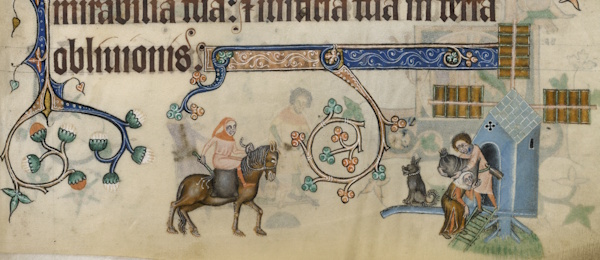 mirabilia tua: ⁊ iusticia tua in terra
obliuionis.